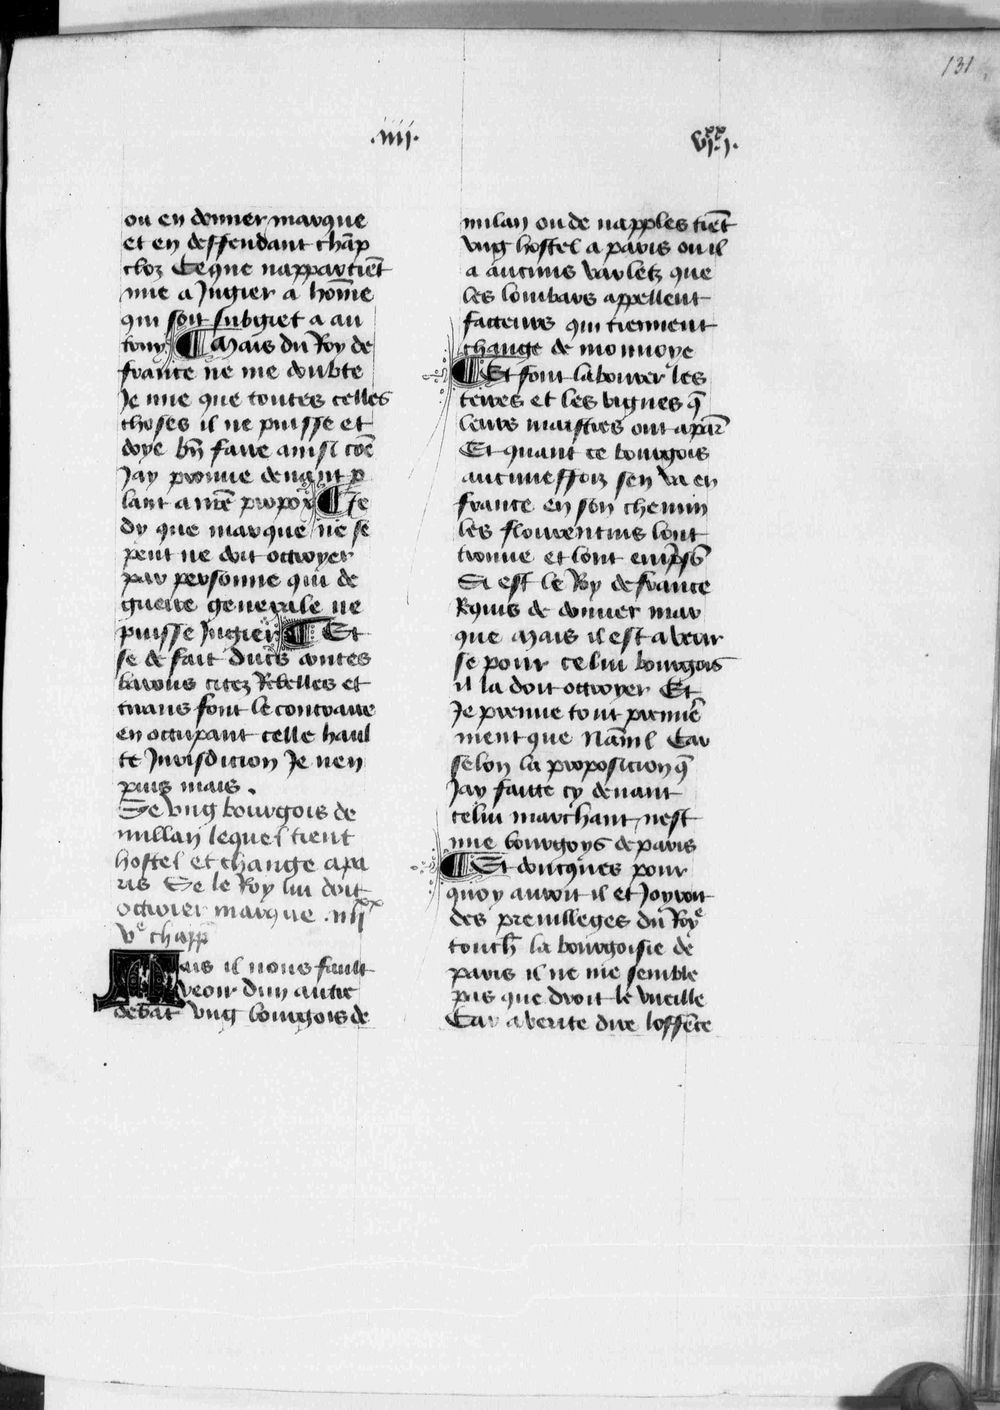 131
.iiii.
vi.xx j.
ou en donner marque
et en deffendant chāp
cloz Ce que nappartiēt
mie a Jugier a hōme
qui soit subgiet a au
truy ¶ Mais du Roy de
france ne me doubte
Je mie que toutes celles
choses il ne puisse et
doye bn̄ faire ainsi cōe
Jay prouue deuant p
lant a nr̄e propox ¶ Je
dy que marque ne se
peut ne doit octroyer
par personne qui de
guerre generale ne
puisse Jugier ¶ Et
se de fait ducs contes
barons citez Rebelles et
tirans font le contraire
en occupant celle haul
te Jurisdicion Je nen
puis mais .
Se vng bourgois de
millan lequel tient
hostel et change a pa
ris Se le Roy lui doit
octroier marque .iiiixx
ve chapp̄
Mais il nous fault
veoir dun autre
debat vng bourgois de
milan ou de napples tiēt
vng hostel a paris ou il
a aucuns varletz que
les lombars appellent
facteurs qui tiennent
change de monnoye
¶ Et font labourer les
terres et les vignes q̄
leurs maistres ont a par̄
Et quant ce bourgois
aucuneffoiz sen va en
france en son chemin
les flourentins lont
trouue et lont emp̄s̄
Si est le Roy de france
Requis de donner mar
que Mais il est a veoir
se pour celui bourgois
il la doit octroyer Et
Je preuue tout premie͛
ment que Nāīl Car
selon la proposicion q̄
Jay faitte cy deuant
celui marchant nest
mie bourgoys de paris
¶ Et doncques pour
quoy auroit il et Joyroit
des preuilleges du Roye
touch̄ la bourgoisie de
paris il ne me semble
pas que droit le vueille
Car a verite dire loffēce